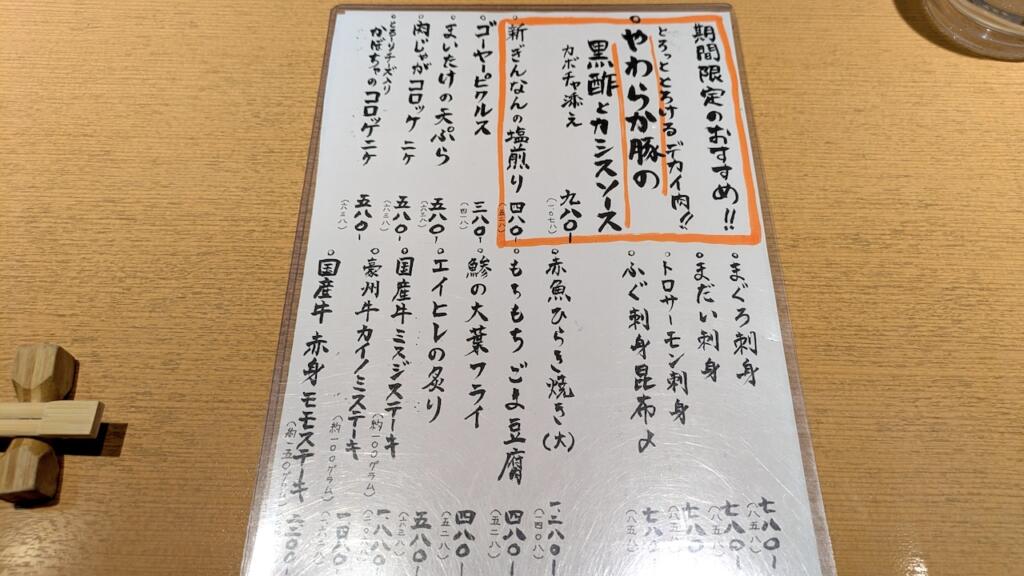 期間限定のおすすめ!!
とろっととろけるデカイ肉!!
やわらか豚の
黒酢とカシスソース
カボチャ添え
九八〇-
(一〇七八)
新ぎんなんの塩煎り
四八〇-
(五二八)
ゴーヤーピクルス
三八〇-
(四一八)
まいたけの天ぷら
五八〇-
(六三八)
肉じゃがコロッケ 二ケ
五八〇-
(六三八)
とろーりチーズ入り
かぼちゃのコロッケ 二ケ
五八〇-
(六三八)
まぐろ刺身
七八〇-
(八五八)
まだい刺身
七八〇-
(八五八)
トロサーモン刺身
七八〇-
(八五八)
ふぐ刺身昆布〆
七八〇-
(八五八)
赤魚ひらき焼き(大)
一二八〇-
(一四〇八)
もちもちごま豆腐
四八〇-
(五二八)
鯵の大葉フライ
四八〇-
(五二八)
エイヒレの炙り
五八〇-
(六三八)
国産牛ミスジステーキ
(約一〇〇グラム)
豪州牛カイノミステーキ
(約一〇〇グラム)
国産牛 赤身 モモステーキ
(約一五〇グラム)